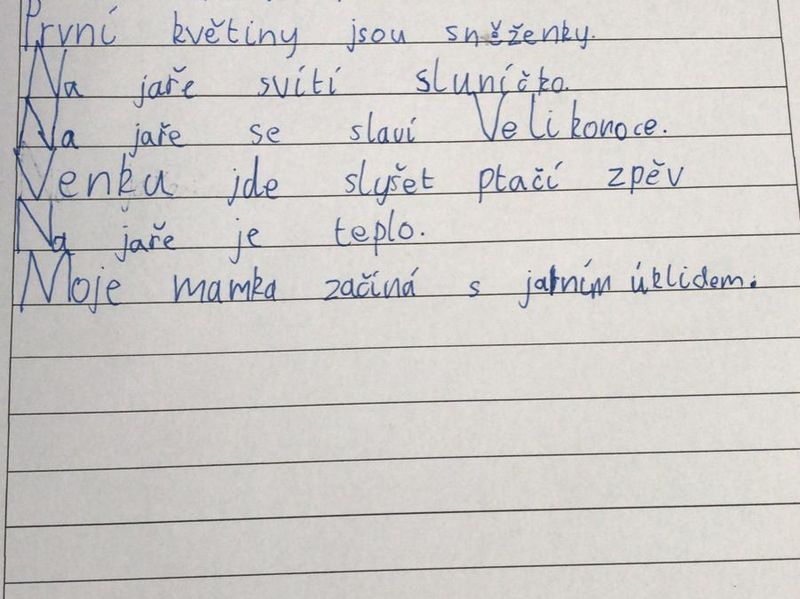 První květiny jsou sněženky.
Na jaře svítí sluníčko.
Na jaře se slaví Velikonoce.
Venku jde slyšet ptačí zpěv
Na jaře je teplo.
Moje mamka začíná s jarním úklidem.